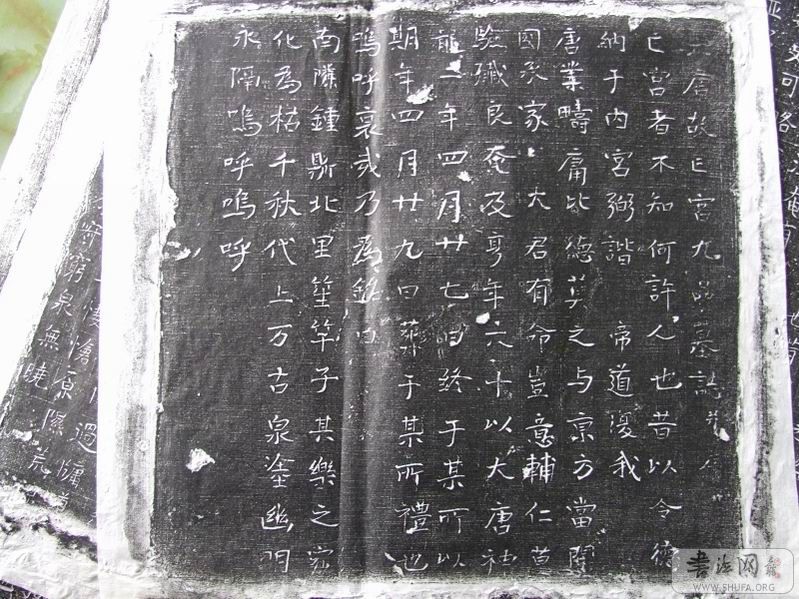 大唐故亡宮九品墓誌并序
亡宮者不知何許人也昔以令德
納于内宮弼諧 帝道復我
唐業疇庸比德莫之与京方當開
國承家大君有命豈意輔仁莫
驗殲良奄及享年六十以大唐神
龍二年四月廿七日終于某所以
期年四月廿九日葬于某所禮也
嗚呼哀哉乃為銘曰
南隣鍾鼎北里笙竽子其樂之
化為枯千秋代上万古泉塗幽明
永隔嗚呼嗚呼
悽愴原隰荒
守窮泉無曉
书法网
WWW.SHUFA.ORG